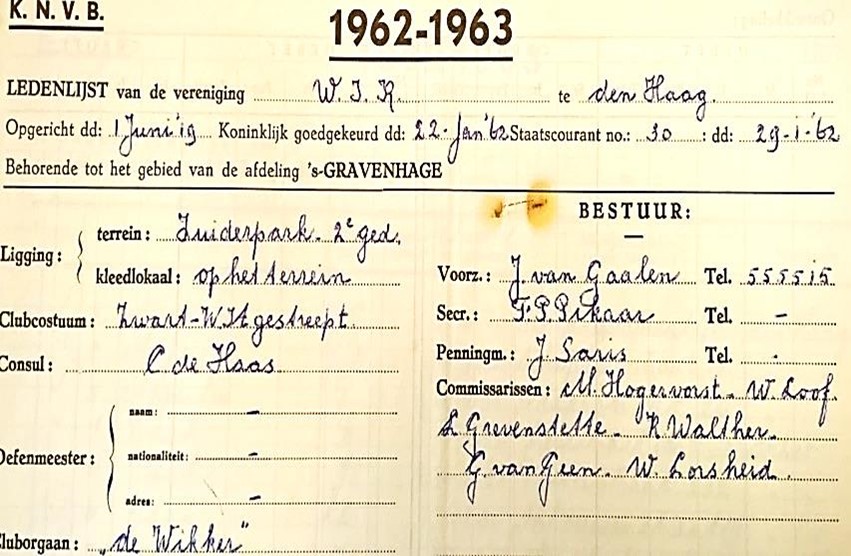 K. N. V. B.
1962-1963
LEDENLIJST van de vereniging W.I.K. te den Haag.
Opgericht dd: 1 Juni '19 Koninklijk goedgekeurd dd: 22-Jan '62 Staatscourant no.: 30 : dd: 29-1-'62
Behorende tot het gebied van de afdeling 's-GRAVENHAGE
Ligging: terrein: Zuiderpark. 2e ged.
kleedlokaal: op het terrein
Clubcostuum: Zwart-Wit gestreept.
Consul: C de Haas
Oefenmeester: naam: –
nationaliteit: –
adres: –
Cluborgaan: „de Wikker"
BESTUUR:
Voorz.: J. van Gaalen Tel. 555515
Secr.: F.P. Pikaar Tel. –
Penningm.: J. Saris Tel. .
Commissarissen: M. Hogervorst – W. Loof.
L Grevenstette – K Walther.
G. van Geen. W. Lorsheid.